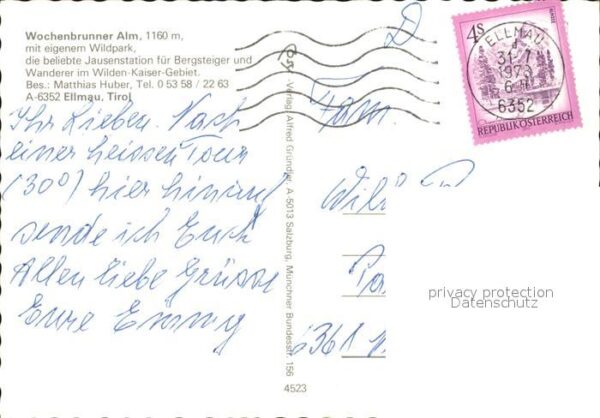 Wochenbrunner Alm, 1160 m,
mit eigenem Wildpark,
die beliebte Jausenstation für Bergsteiger und
Wanderer im Wilden-Kaiser-Gebiet.
Bes.: Matthias Huber, Tel. 0 53 58 / 22 63
A-6352 Ellmau, Tirol
Ihr Lieben. Nach
einer heissen Tour
(30°) hier hinauf
sende ich Euch
Allen liebe Grüsse
Eure Emmy
Verlag Alfred Gründler, A-5013 Salzburg, Münchner Bundesstr. 156
4523
D
Fam.
4S
REPUBLIK ÖSTERREICH
ELLMAU
6352
privacy protection
Datenschutz